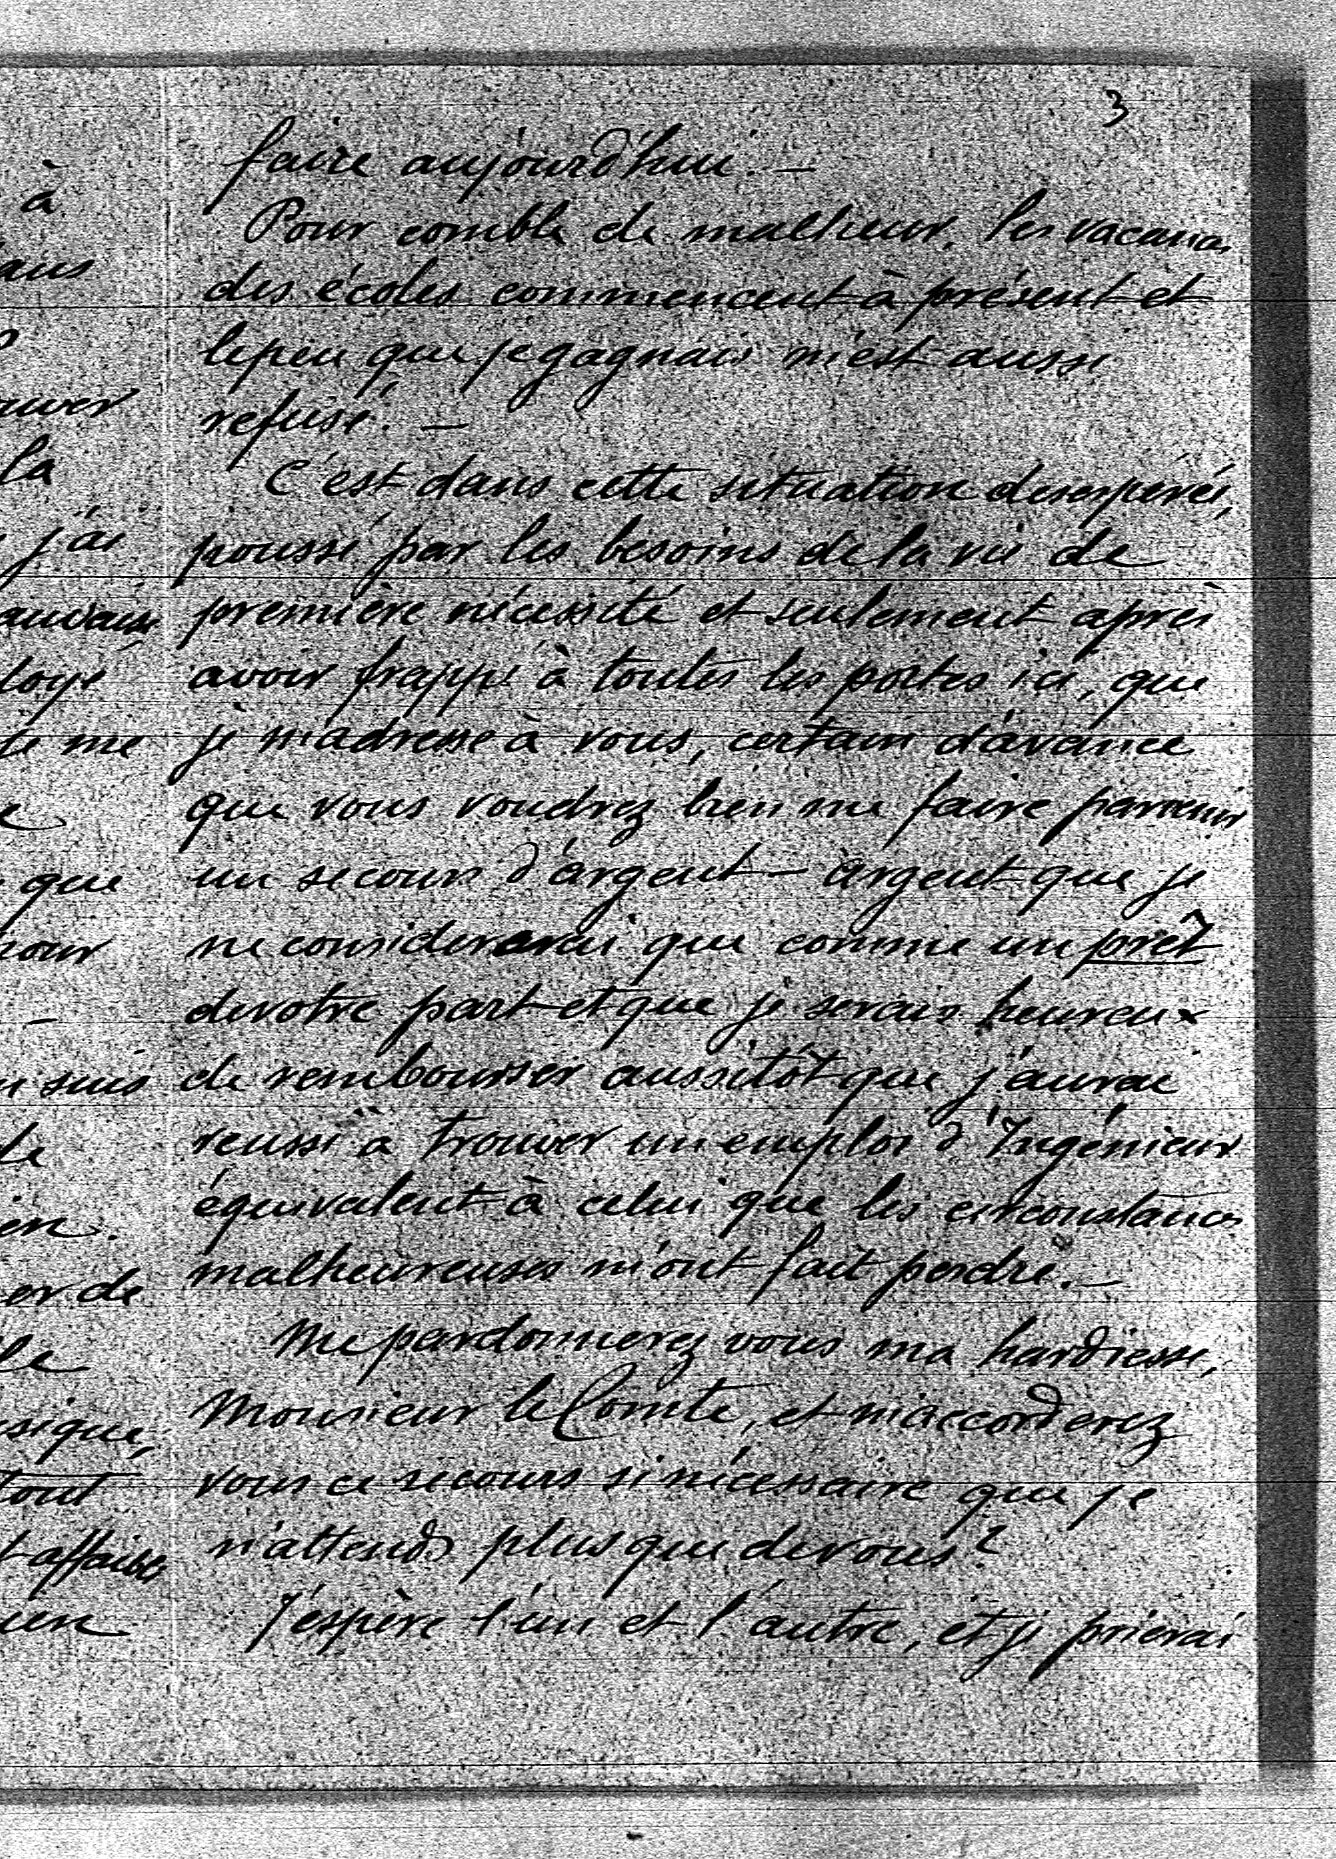 3
faire aujourd'hui. —
Pour comble de malheur, les vacances
des écoles commencent à présent et
le peu que je gagnais m'est aussi
refusé. —
C'est dans cette situation désespérée,
poussé par les besoins de la vie de
première nécessité et seulement après
avoir frappé à toutes les portes ici, que
je m'adresse à vous, certain d'avance
que vous voudrez bien me faire parvenir
un secours d'argent — argent que je
ne considererai que comme un prêt
de votre part et que je serais heureux
de rembourser aussitôt que j'aurai
reussi à trouver un emploi d'Ingénieur
équivalent à celui que les circonstances
malheureuses m'ont fait perdre. —
Me pardonnerez vous ma hardiesse,
Monsieur le Comte, et m'accorderez
vous ce secours si nécessaire que je
n'attends plus que de vous?
J'espère l'un et l'autre, et je prierai
à
ans
ouver
la
j'ai
me
que
pour
suis
de
er de
tout